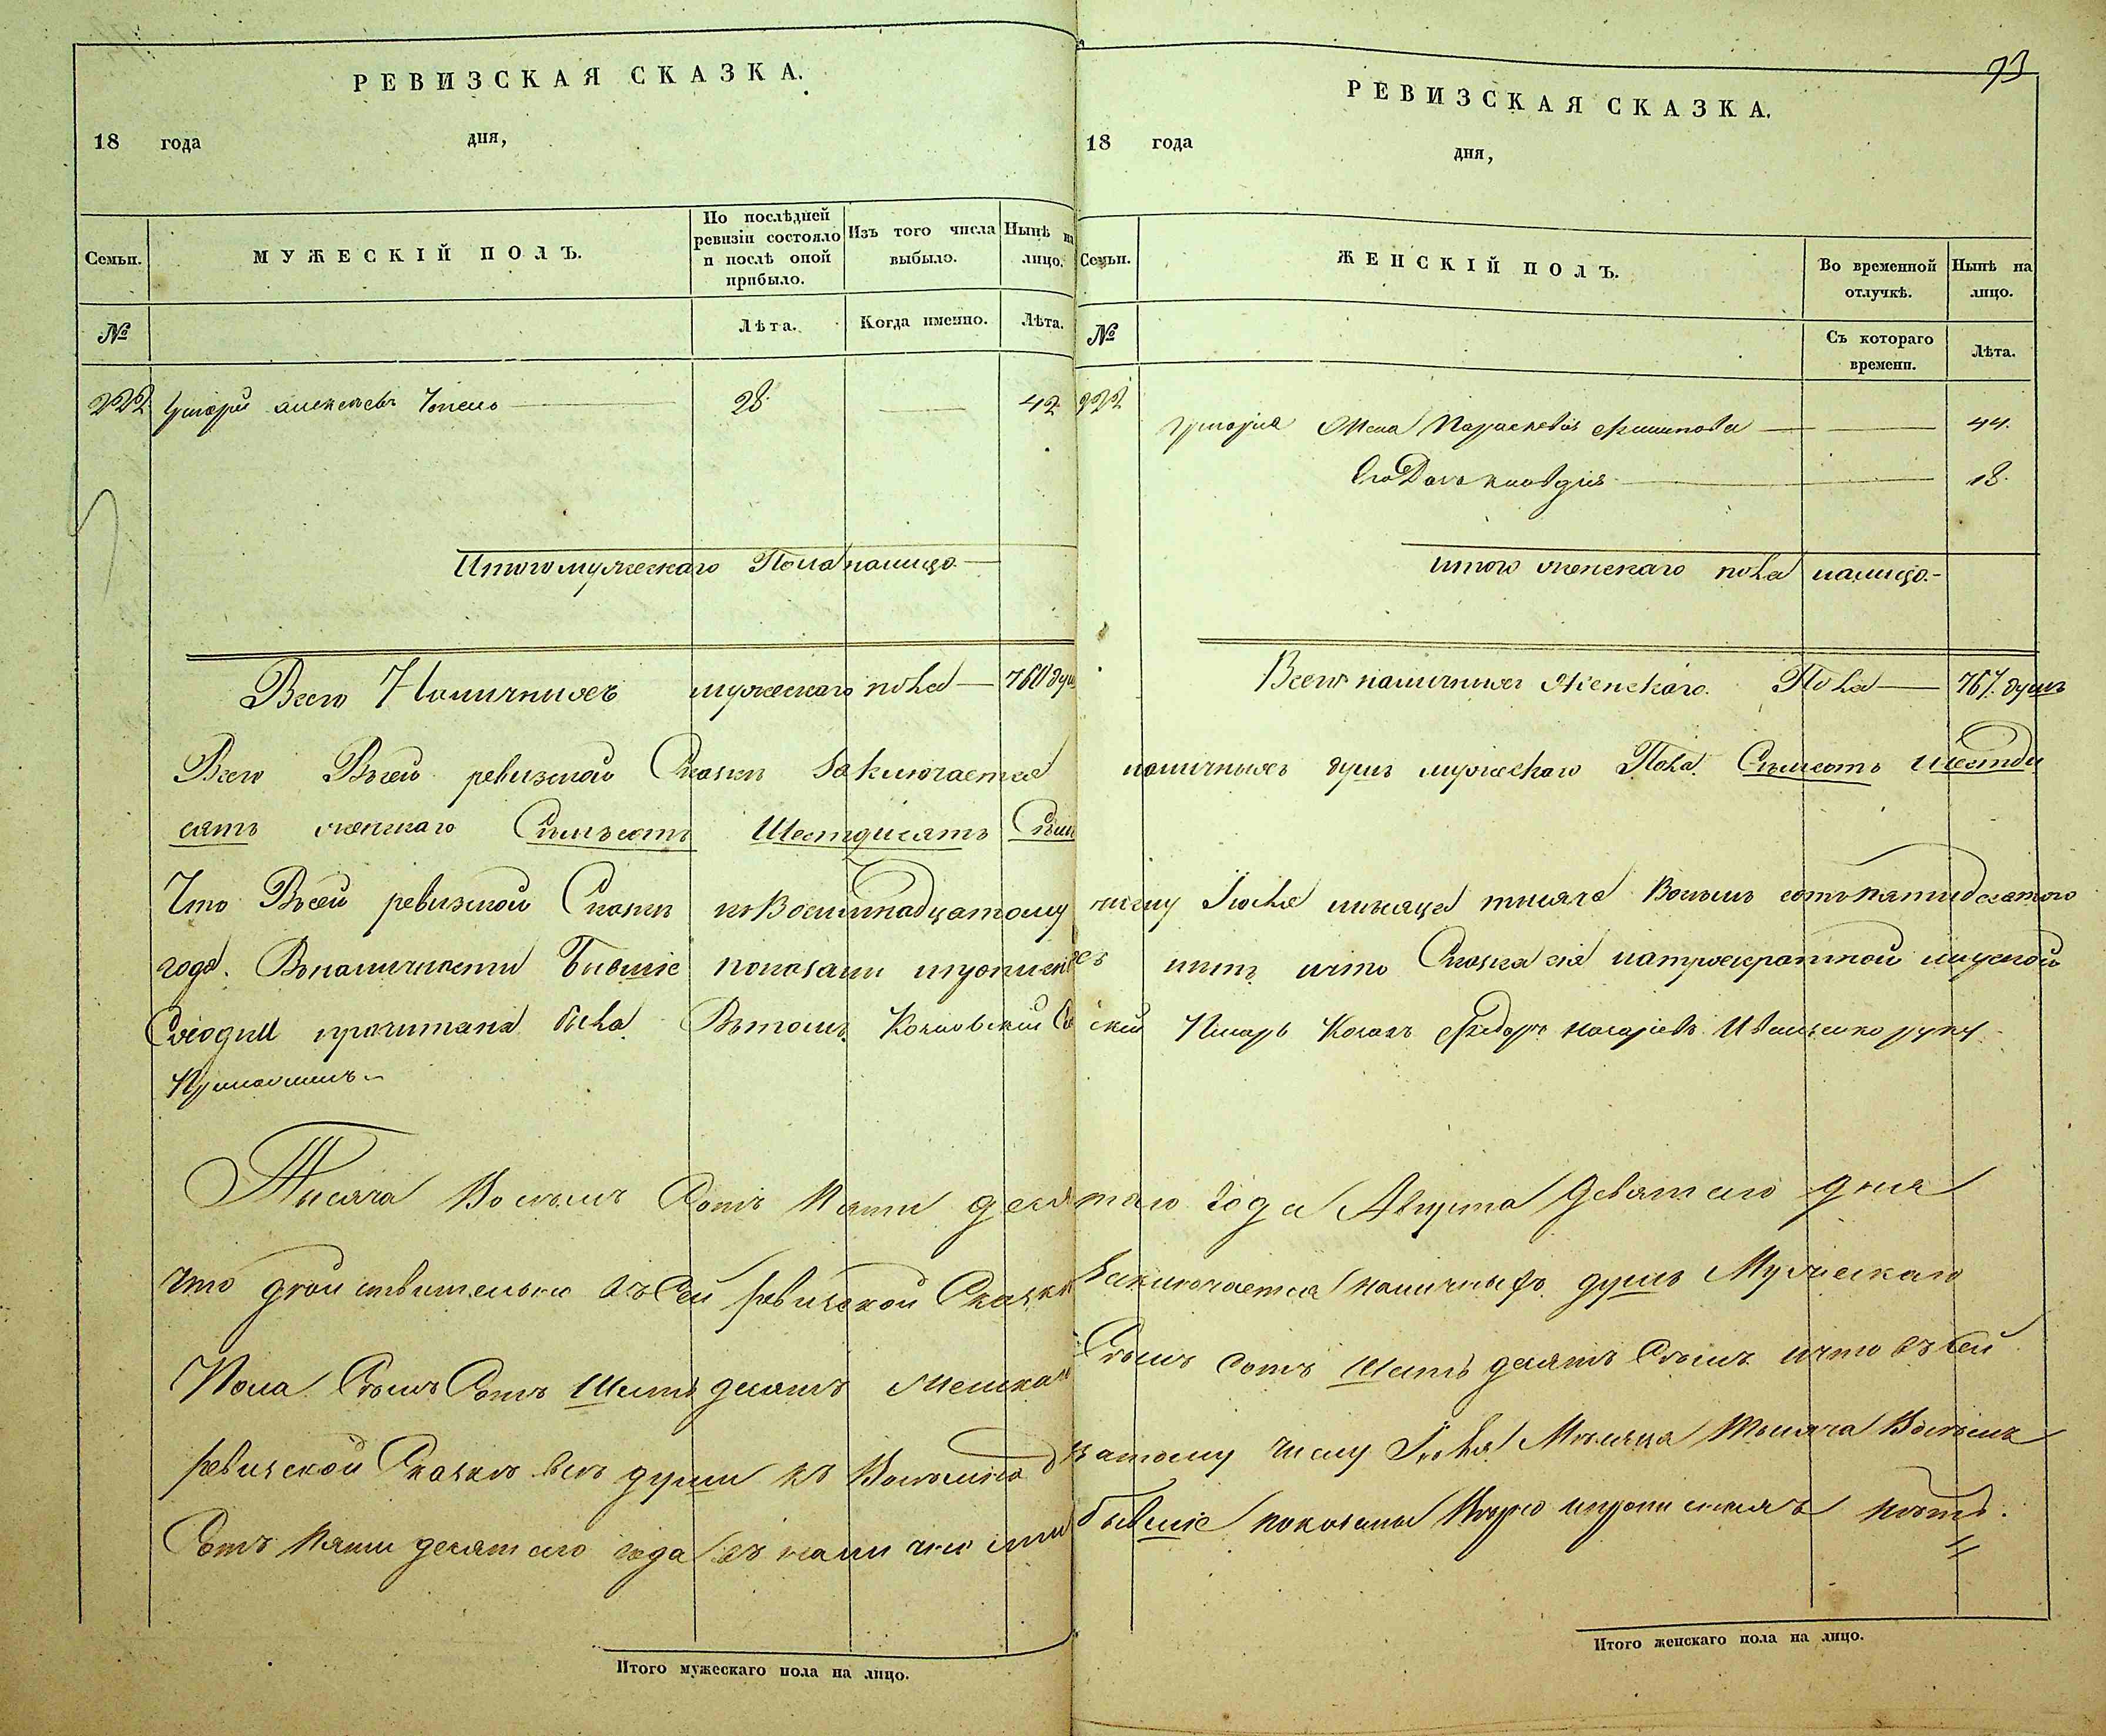 РЕВИЗСКАЯ СКАЗКА.
18 года дня,
Семьи. МУЖЕСКІЙ ПОЛЪ. По послѣдней ревизіи состояло и послѣ оной прибыло. Изъ того числа выбыло. Нынѣ на лицо.
№ Лѣта. Когда именно. Лѣта.
222 28 42
Итого мужескаго Пола налицо
Всего Наличныхъ мужескаго пола 760 душ
73
РЕВИЗСКАЯ СКАЗКА.
18 года дня,
Семьи. ЖЕНСКІЙ ПОЛЪ. Во временной отлучкѣ. Нынѣ на лицо.
№ Съ котораго времени. Лѣта.
222 Жена Параскевія 44.
Его Дочь 18.
итого женскаго пола налицо
Всего наличныхъ Женскаго Пола 767 душъ
Всего Въсей ревизской Сказкѣ Заключается наличныхъ душъ мужескаго Пола Съмъсотъ Шестде
сятъ женскаго Съмъсотъ Шестдисятъ Съмъ
Что Всей ревизской Сказкѣ квосьмнадцатому числу Іюля мѣсяца тысяча восьмъ сотъ пятидесятого
года. Вналичности Бывшіе показаны нѣтъ ичто Сказка сія натроекратной мирской
Сходки прочитана была. Вътомъ скій Писарь Козакъ Федоръ Иваненко руку
Приложилъ
Тысяча Восѣмъ Сотъ Пяти десятаго года Августа Девятаго дня
что дѣйствительно въ Сей ревизской Сказкѣ Заключается наличныхъ душъ Мужескаго
Пола Сѣмъ Сотъ Шесть десятъ Женскаго Сѣмъ сотъ Шесть десятъ Сѣмъ ичто въ сей
ревизской Сказкѣ всѣ души къ Восьмнадцатому числу Іюля Мѣсяца Тысяча Восѣмъ
Сотъ Пяти десятаго года въ наличности бывшіе показаны нѣтъ.
Итого мужескаго пола на лицо.
Итого женскаго пола на лицо.